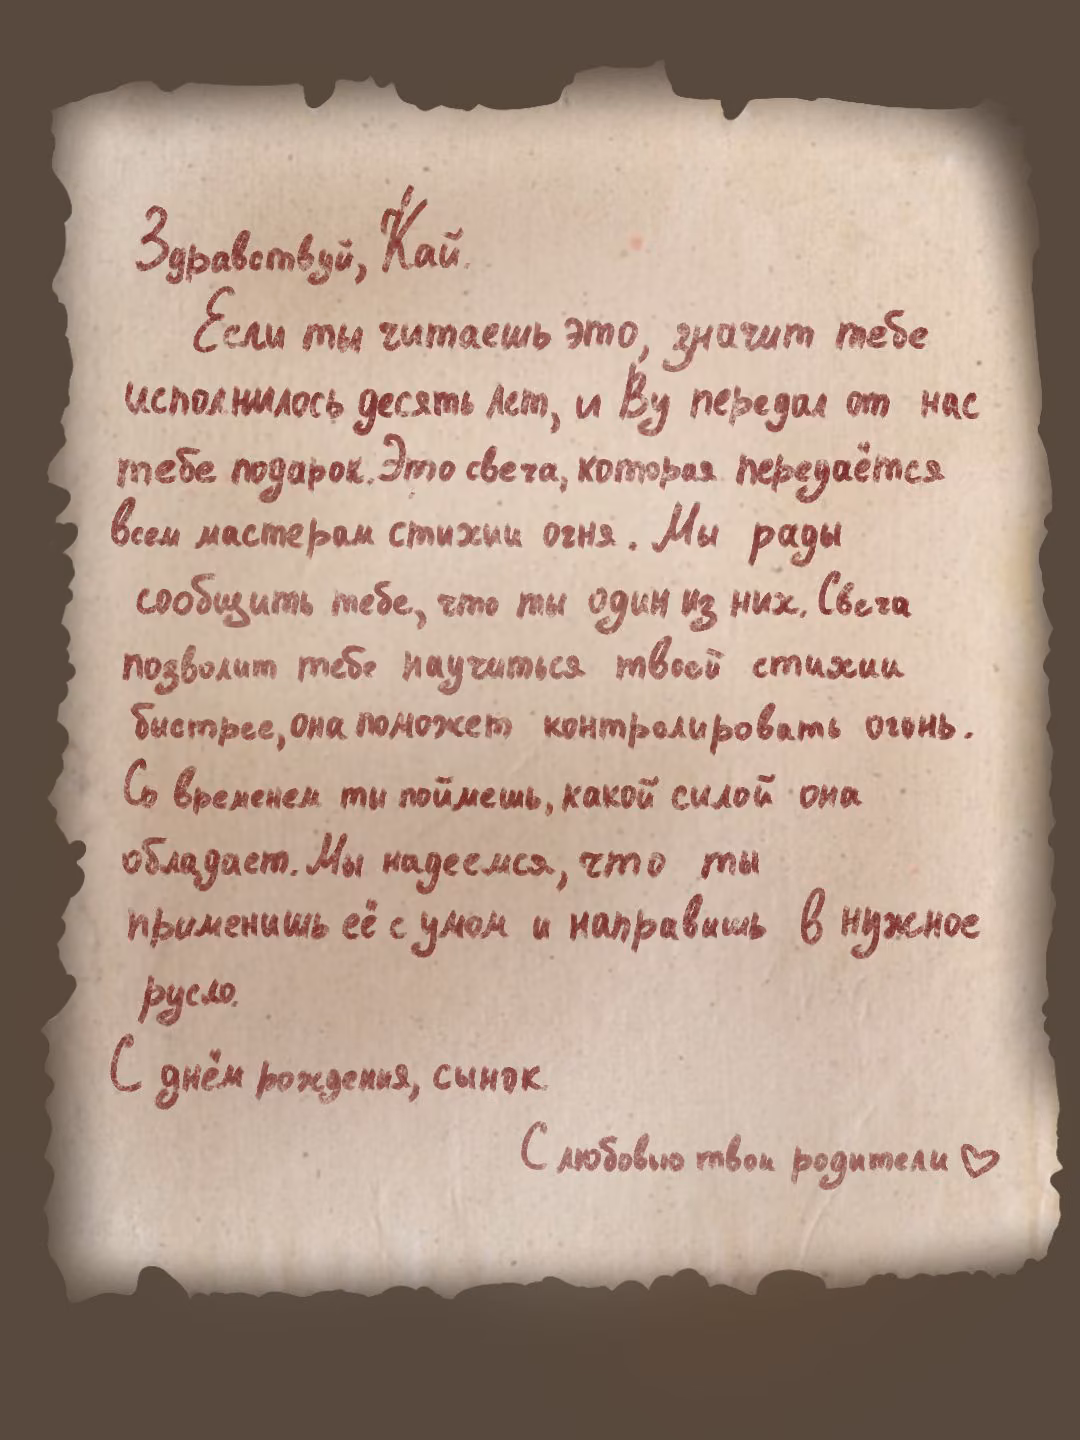 Здравствуй, Кай.
Если ты читаешь это, значит тебе
исполнилось десять лет, и Ву передал от нас
тебе подарок. Это свеча, которая передаётся
всем мастерам стихии огня. Мы рады
сообщить тебе, что ты один из них. Свеча
позволит тебе научиться твоей стихии
быстрее, она поможет контролировать огонь.
Со временем ты поймешь, какой силой она
обладает. Мы надеемся, что ты
применишь её с умом и направишь в нужное
русло.
С днём рождения, сынок.
С любовью твои родители ♡